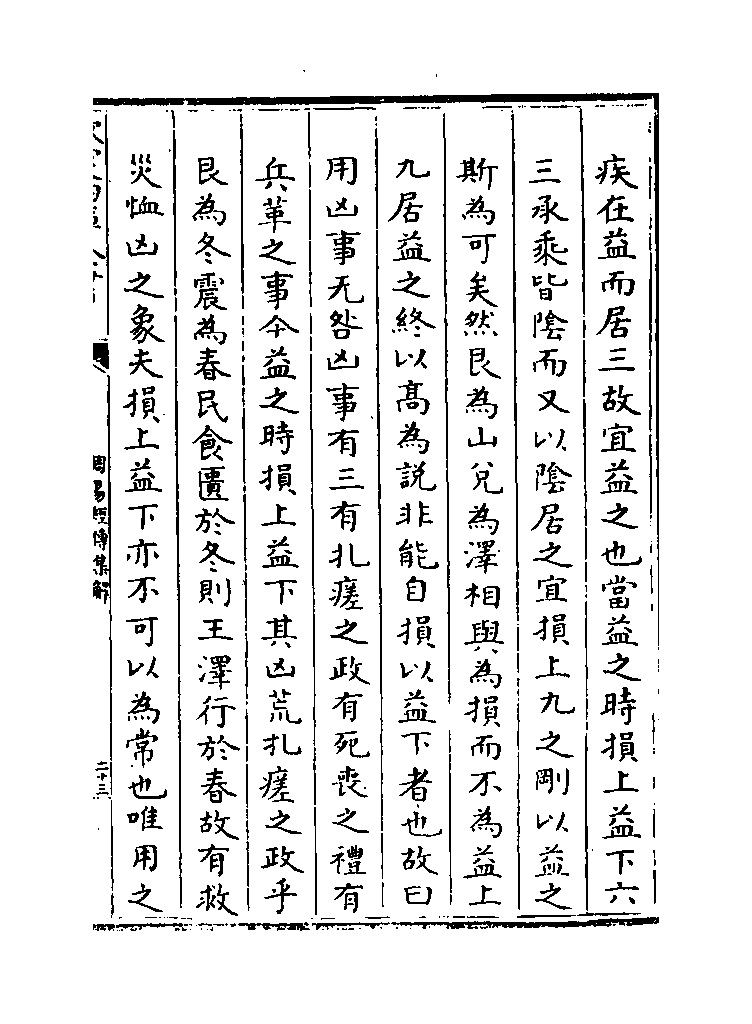 疾在益而居三故宜益之也當益之時損上益下六
三承乘皆陰而又以陰居之宜損上九之剛以益之
斯為可矣然艮為山兌為澤相與為損而不為益上
九居益之終以髙為説非能自損以益下者也故曰
用凶事无咎凶事有三有札瘥之政有死喪之禮有
兵革之事今益之時損上益下其凶荒札瘥之政乎
艮為冬震為春民食匱於冬則王澤行於春故有救
災恤凶之象夫損上益下亦不可以為常也唯用之
周易經傳集解
二十三